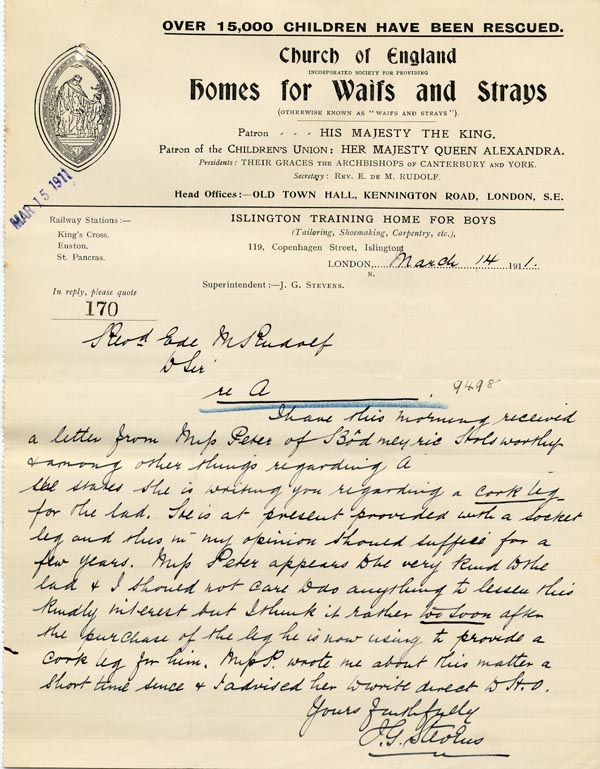 OVER 15,000 CHILDREN HAVE BEEN RESCUED.
Church of England
INCORPORATED SOCIETY FOR PROVIDING
Homes for Waifs and Strays
(OTHERWISE KNOWN AS "WAIFS AND STRAYS").
Patron - - - HIS MAJESTY THE KING.
Patron of the CHILDREN'S UNION: HER MAJESTY QUEEN ALEXANDRA.
Presidents: THEIR GRACES THE ARCHBISHOPS OF CANTERBURY AND YORK.
Secretary: REV. E. DE M. RUDOLF.
Head Offices:—OLD TOWN HALL, KENNINGTON ROAD, LONDON, S.E.
MAR 15 1911
Railway Stations:—
King's Cross.
Euston.
St. Pancras.
ISLINGTON TRAINING HOME FOR BOYS
(Tailoring, Shoemaking, Carpentry, etc.),
119, Copenhagen Street, Islington
LONDON, March 14 1911.
N.
Superintendent:—J. G. STEVENS.
In reply, please quote
170
Revd Ede M Rudolf
D Sir
re A 9498
I have this morning received
a letter from Miss Peter of Holsworthy
& among other things regarding A
she states she is writing you regarding a cork leg
for the lad. He is at present provided with a socket
leg and this in my opinion should suffice for a
few years. Miss Peter appears to be very kind to the
lad & I should not care to do anything to lessen this
kindly interest but I think it rather too soon after
the purchase of the leg he is now using to provide a
cork leg for him. Miss P. wrote me about this matter a
short time since & I advised her to write direct to H.O.
Yours faithfully
J.G. Stevens